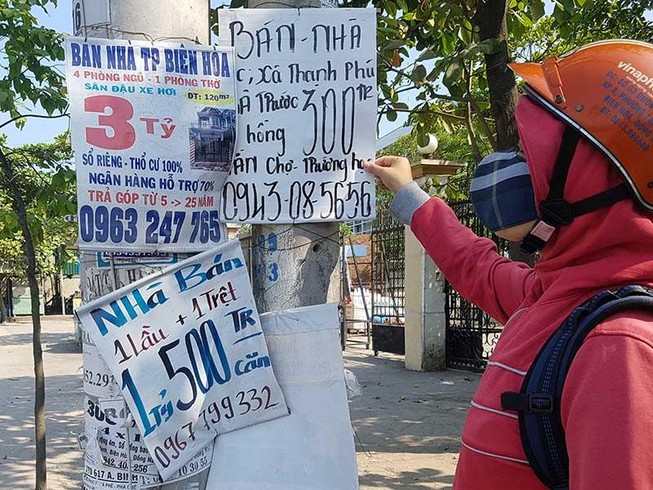 BÁN NHÀ TP BIÊN HÒA
4 PHÒNG NGỦ - 1 PHÒNG THỜ
SÂN ĐẬU XE HƠI
DT: 120m²
3 Tỷ
SỔ RIÊNG - THỔ CƯ 100%
NGÂN HÀNG HỖ TRỢ 70%
TRẢ GÓP TỪ 5 -> 25 NĂM
0963 247 765
BÁN-NHÀ
Xã Thạnh Phú
Trước
300 TR
hồng
Chợ-Thương
0943-08-5656
Nhà Bán
1 lầu + 1 Trệt
1 Tỷ 500 TR
Căn
0967 799 332
52.297